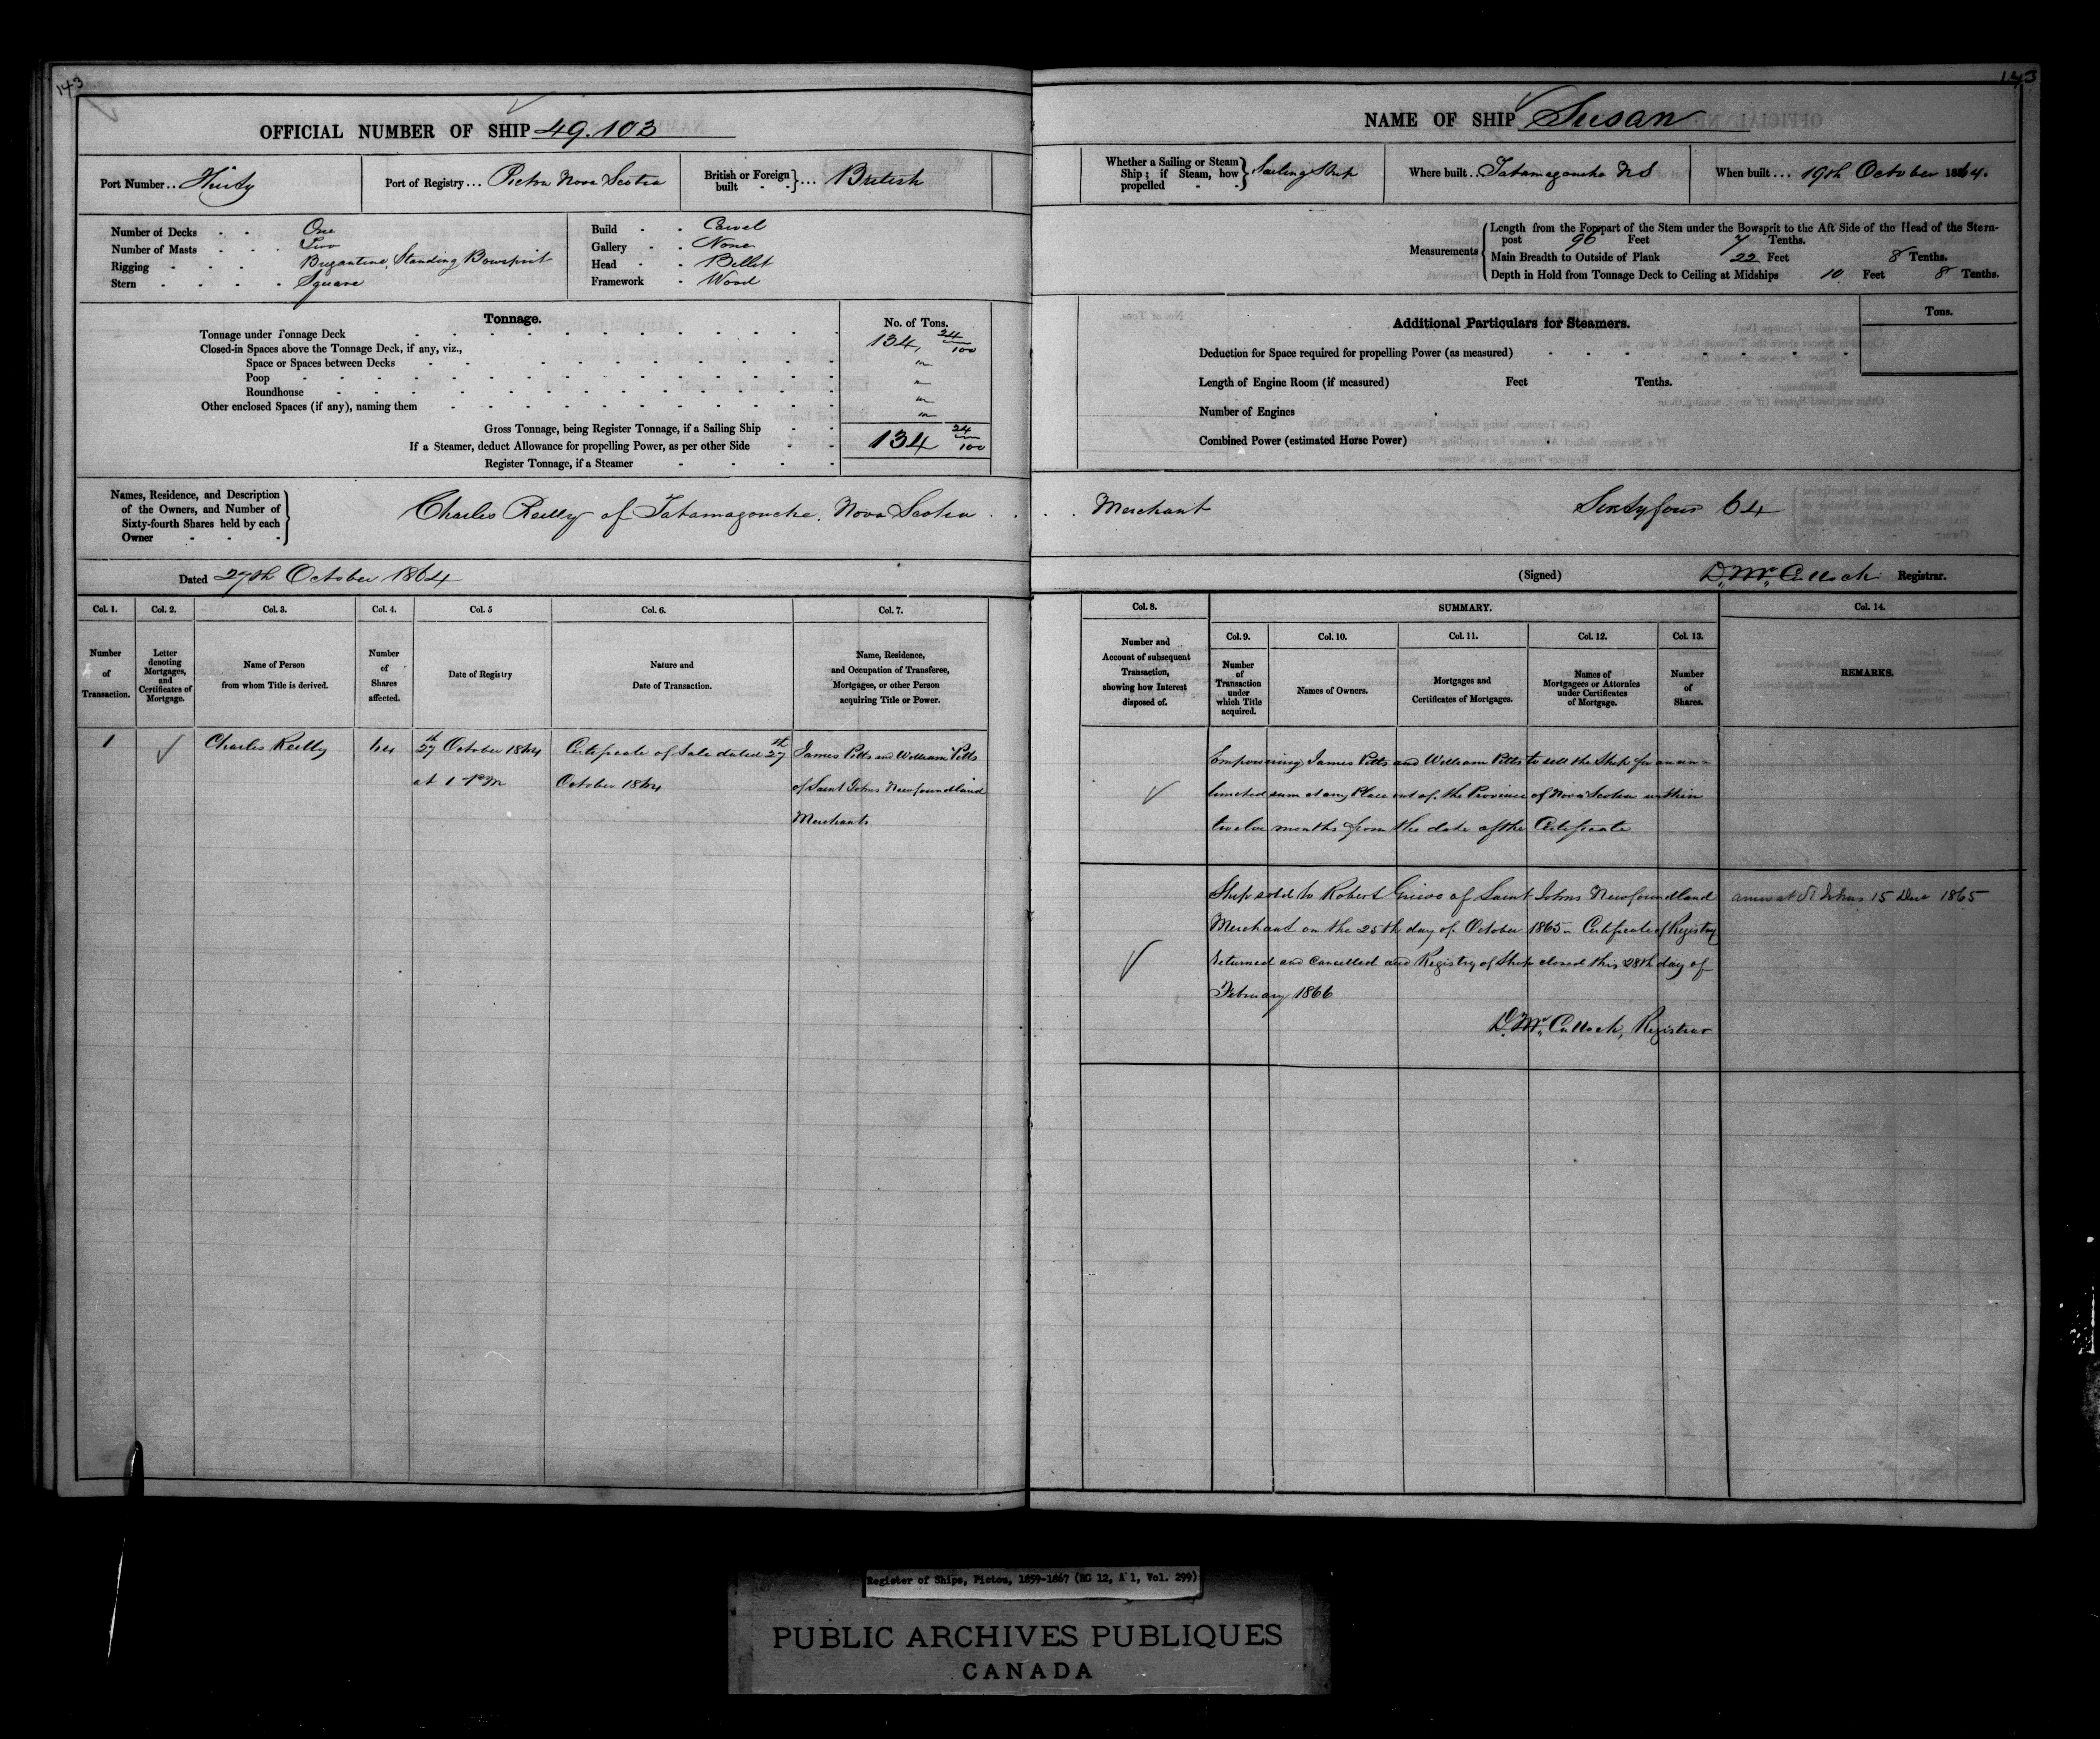 143
OFFICIAL NUMBER OF SHIP 49.103
Port Number.. Thirty
Port of Registry... Pictou Nova Scotia
British or Foreign built - - }... British
Number of Decks - - One
Number of Masts - - - Two
Rigging - - - Brigantine, Standing Bowsprit
Stern - - - - Square
Build - - Carvel
Gallery - - None
Head - - Billet
Framework - Wood
Tonnage.
No. of Tons.
Tonnage under Tonnage Deck 134, 24/100
Closed-in Spaces above the Tonnage Deck, if any, viz.,
Space or Spaces between Decks "
Poop "
Roundhouse "
Other enclosed Spaces (if any), naming them "
Gross Tonnage, being Register Tonnage, if a Sailing Ship 134 24/100
If a Steamer, deduct Allowance for propelling Power, as per other Side
Register Tonnage, if a Steamer
Names, Residence, and Description
of the Owners, and Number of
Sixty-fourth Shares held by each
Owner
Charles Reilly of Tatamagouche, Nova Scotia
Dated 27th October 1864
Col. 1.
Number of Transaction.
Col. 2.
Letter denoting Mortgages, and Certificates of Mortgage.
Col. 3.
Name of Person from whom Title is derived.
Col. 4.
Number of Shares affected.
Col. 5
Date of Registry
Col. 6.
Nature and Date of Transaction.
Col. 7.
Name, Residence, and Occupation of Transferee, Mortgagee, or other Person acquiring Title or Power.
1
Charles Reilly
64
27th October 1864
at 1 PM
Certificate of Sale dated 27th
October 1864
James Pitts and William Pitts
of Saint Johns Newfoundland
Merchants
143
NAME OF SHIP Susan
Whether a Sailing or Steam Ship; if Steam, how propelled - - } Sailing Ship
Where built.. Tatamagouche NS
When built... 19th October 1864.
Measurements
Length from the Forepart of the Stem under the Bowsprit to the Aft Side of the Head of the Stern-
post 96 Feet 7 Tenths.
Main Breadth to Outside of Plank 22 Feet 8 Tenths.
Depth in Hold from Tonnage Deck to Ceiling at Midships 10 Feet 8 Tenths.
Additional Particulars for Steamers.
Tons.
Deduction for Space required for propelling Power (as measured)
Length of Engine Room (if measured) Feet Tenths.
Number of Engines
Combined Power (estimated Horse Power)
Merchant Sixty four 64
(Signed) D. McCulloch Registrar.
Col. 8.
Number and Account of subsequent Transaction, showing how Interest disposed of.
SUMMARY.
Col. 9.
Number of Transaction under which Title acquired.
Col. 10.
Names of Owners.
Col. 11.
Mortgages and Certificates of Mortgages.
Col. 12.
Names of Mortgagees or Attornies under Certificates of Mortgage.
Col. 13.
Number of Shares.
Col. 14.
REMARKS.
Empowering James Pitts and William Pitts to sell the Ship for an un-
limited sum at any Place out of the Province of Nova Scotia within
twelve months from the date of the Certificate
Ship sold to Robert Grieve of Saint Johns Newfoundland
Merchant on the 25th day of October 1865. Certificate of Registry
returned and cancelled and Registry of Ship closed this 28th day of
February 1866
D. McCulloch, Registrar
anew at St Johns 15 Decr 1865
Register of Ships, Pictou, 1859-1867 (RG 12, A 1, Vol. 299)
PUBLIC ARCHIVES PUBLIQUES
CANADA